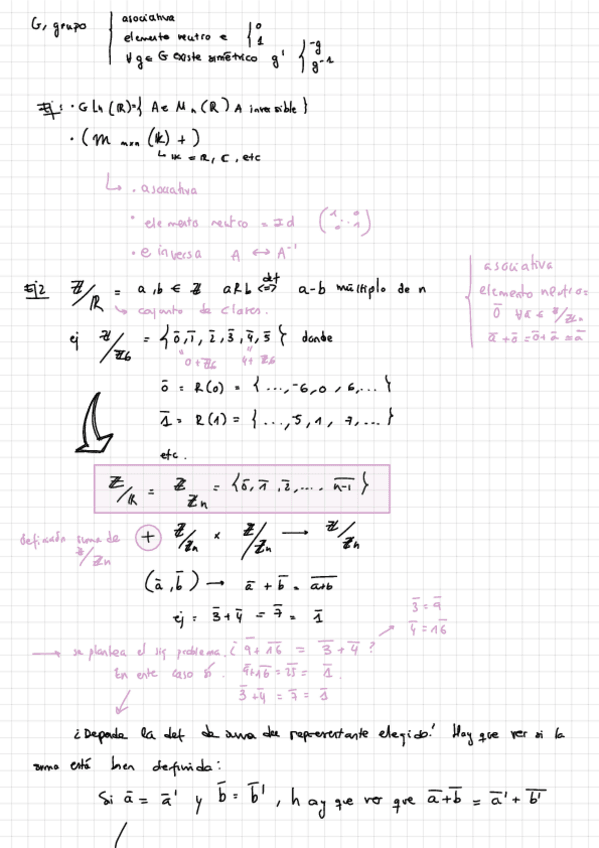 G, grupo
asociativa
elemento neutro e { 0 1
∀g∈G existe simétrico g' { -g g⁻¹
Ej: · GLn(ℝ)={ A∈Mn(ℝ) A inversible }
· (M mxn (𝕂) +)
↳ 𝕂 = ℝ, C, etc
↳ · asociativa
· elemento neutro = Id (1 0 ⋱ 0 1)
· e inversa A ↔ A⁻¹
Ej2 ℤ/R = a,b ∈ ℤ aRb ⇔def a-b múltiplo de n
↳ cojunto de clases.
asociativa
elemento neutro=
0̅ ∀a̅ ∈ ℤ/ℤn
a̅+0̅ = 0̅+a̅ = a̅
ej ℤ/ℤ6 = {0̅,1̅,2̅,3̅,4̅,5̅} donde
0+ℤ6 4+ℤ6
0̅ = R(0) = {...,-6,0,6,...}
1̅ = R(1) = {...,-5,1,7,...}
etc.
ℤ/R = ℤ/ℤn = {0̅,1̅,2̅,.... n-1̅}
definición suma de ℤ/ℤn
+ ℤ/ℤn × ℤ/ℤn → ℤ/ℤn
(a̅,b̅) → a̅+b̅ = a+b̅
ej = 3̅+4̅ = 7̅ = 1̅
3̅ = 9̅
4̅ = 16̅
→ se plantea el sig problema ¿ 9̅+16̅ = 3̅+4̅ ?
En este caso sí. 9̅+16̅ = 25̅ = 1̅.
3̅+4̅ = 7̅ = 1̅
¿Depende la def de suma del representante elegido? Hay que ver si la
suma está bien definida:
Si a̅ = a̅' y b̅ = b̅', hay que ver que a̅+b̅ = a̅'+b̅'